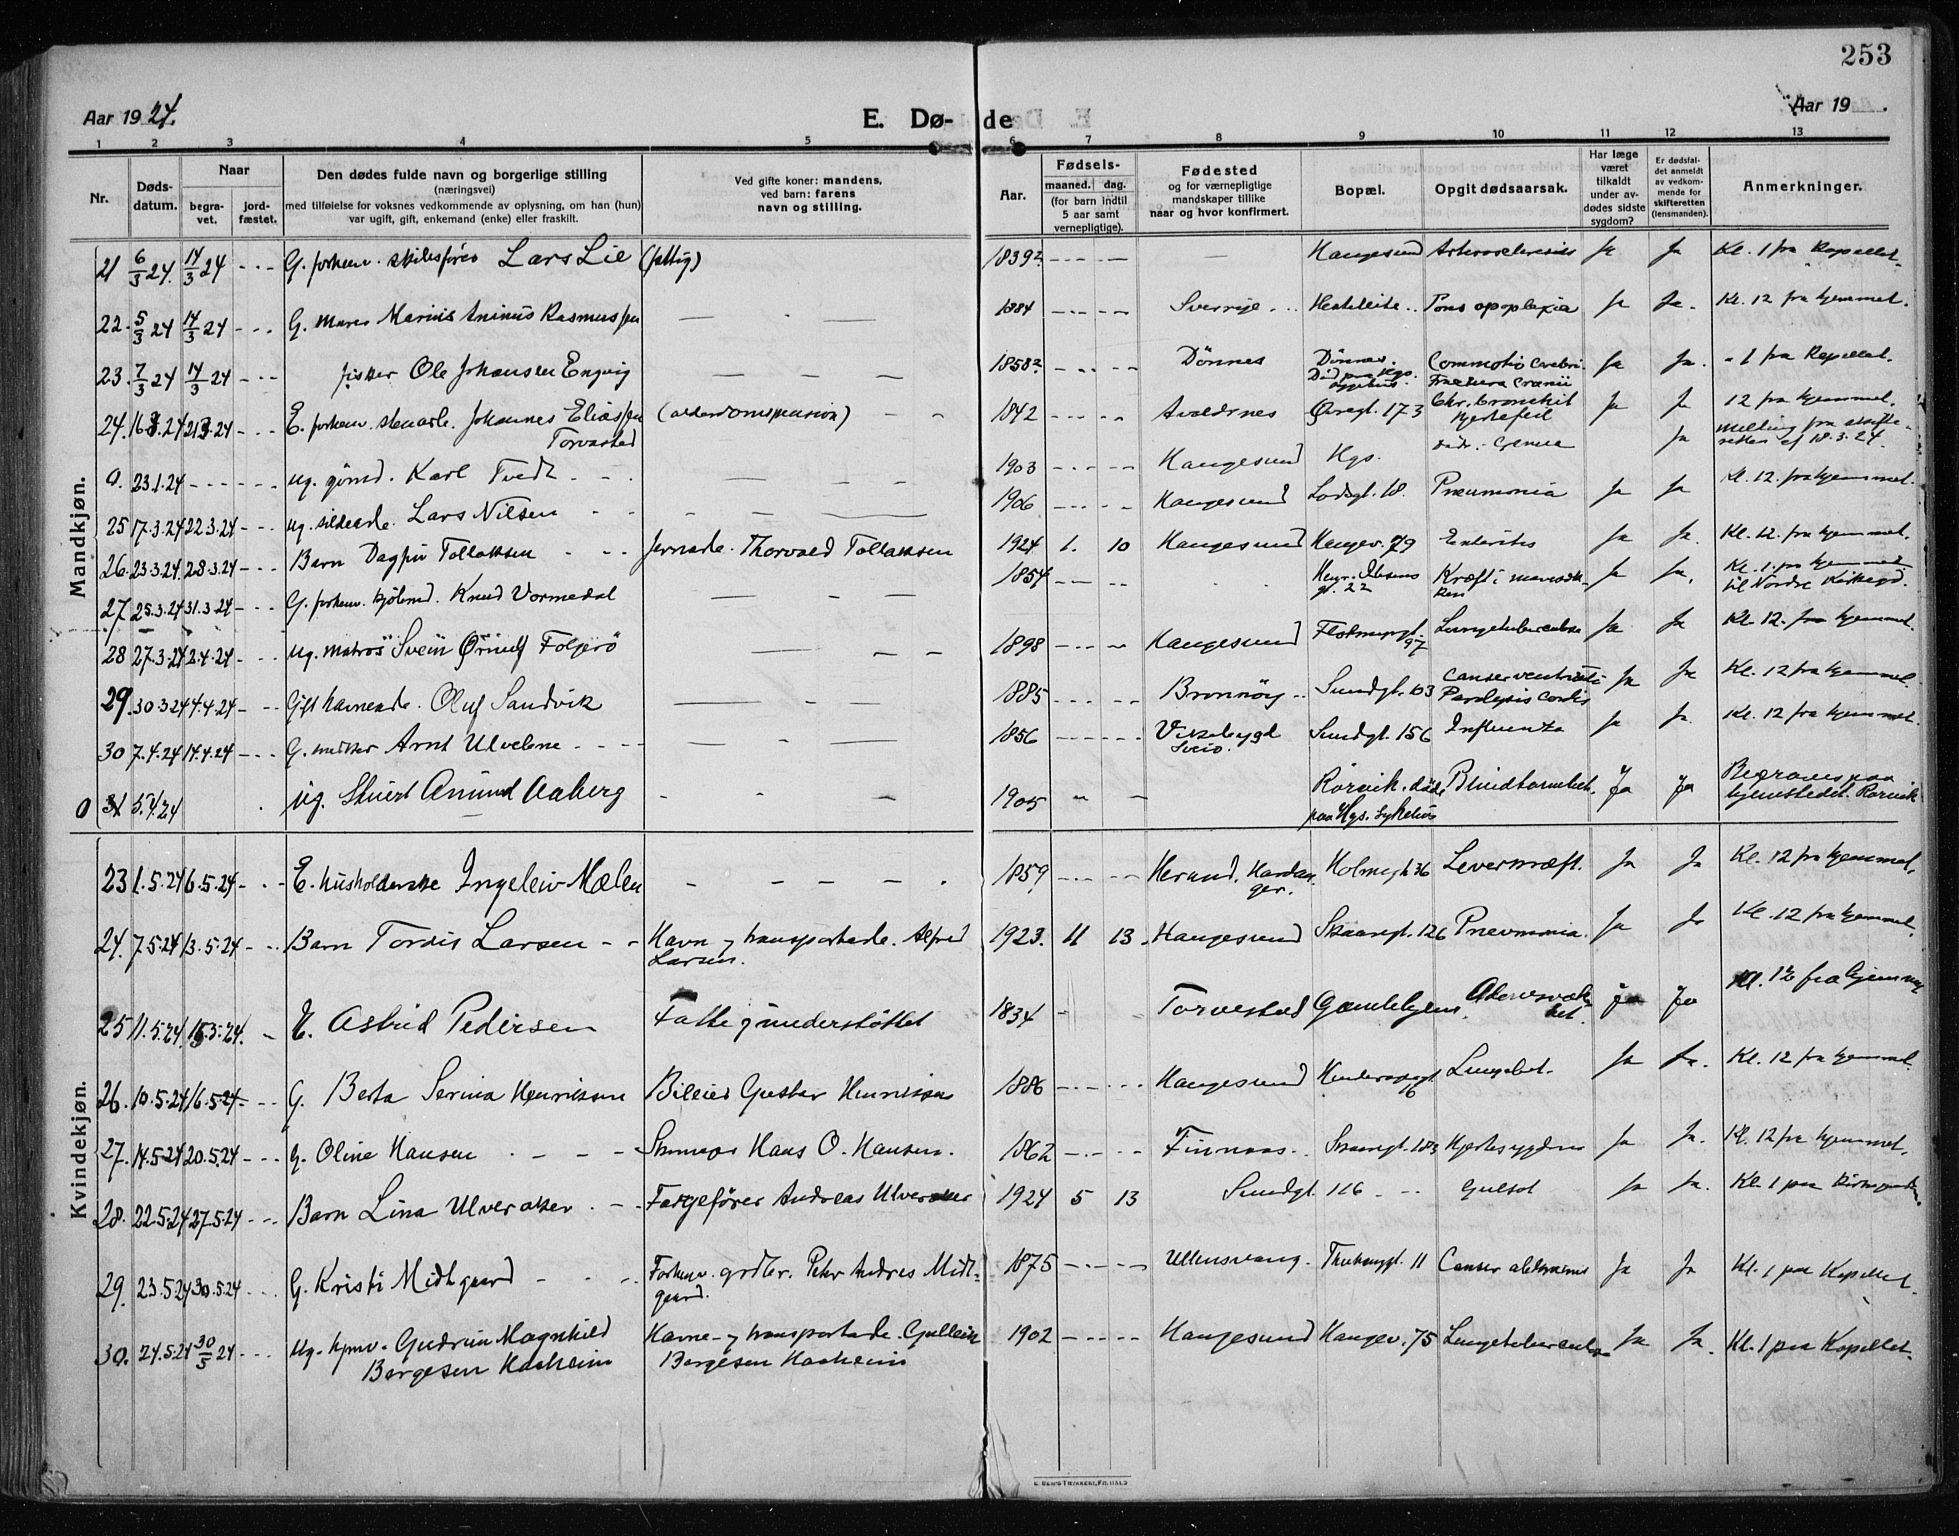 253
Aar 1924.
E. Dø- de
Aar 19
1 2 3 4 5 6 7 8 9 10 11 12 13
Nr.
Døds-
datum.
Naar
begra-
vet.
jord-
fæstet.
Den dødes fulde navn og borgerlige stilling
(næringsvei)
med tilføielse for voksnes vedkommende av oplysning, om han (hun)
var ugift, gift, enkemand (enke) eller fraskilt.
Ved gifte koner: mandens,
ved barn: farens
navn og stilling.
Aar.
Fødsels-
maaned. dag.
(for barn indtil
5 aar samt
vernepligtige).
Fødested
og for værnepligtige
mandskaper tillike
naar og hvor konfirmert.
Bopæl.
Opgit dødsaarsak.
Har læge
været
tilkaldt
under av-
dødes sidste
sygdom?
Er dødsfal-
det anmeldt
av vedkom-
mende for
skifteretten
(lensmanden).
Anmerkninger.
Mandkjøn.
21 6/3 24. 14/3 24 G. forhenv. Lars Lie (fattig) 1839? Haugesund Ja Ja Kl. 1 fra Kapellet.
22. 5/3 24 14/3 24 G. Marius Rasmussen 1884 Sverrige Pons apoplexia Ja Ja. Kl. 12 fra hjemmet.
23. 7/3 24 14/3 24 fisker Ole Johansen Engvig 1858? Dönnes Dönnes. Commotio cerebri Ja Ja. - 1 fra Kapellet.
Död paa Hgs. Fractura cranii
24. 16.3.24 21.3.24 E. forhenv. Johannes Eliassen (alderdomspension) 1842 Avaldsnes Øvregt. 173 Chr. bronchit Ja Ja 12 fra hjemmet.
Torvastad Hjertefeil
0. 23.1.24 ug. Karl Tvedt 1903 Haugesund Hgs. Ja Melding fra skifte-
retten af 18.3.24.
25 17.3.24 22.3.24 ug. sildearb. Lars Nilsen 1906 Haugesund 18. Pneumonia Ja Ja Kl. 12. fra hjemmet.
26. 23.3.24. 28.3.24 Barn Dagfin Tollaksen Jernarb. Thorvald Tollaksen 1924 1. 10 Haugesund Haugev. 79 Enteritis Ja Ja. Kl. 12. fra hjemmet.
27 25.3.24 31.3.24 G. forhenv. Knud Vormedal 1854 Henr. Ibsens Kræft i mavesæk- Ja Ja. Kl. 1. fra hjemmet
gt. 22 ken til Nordre Kirkegd.
28 27.3.24 2.4.24 ug. matros Svein Ørnulf 1898 Haugesund 97 Lungetuberculose Ja Ja Kl. 12. fra hjemmet.
29. 30.3.24 4.4.24 Gift havnearb. Oluf Sandvik 1885 Brønnøy Sundgt. 103 Cancer ventriculi Ja Ja Kl. 12 fra hjemmet.
Paralysis cordis
30 7.4.24 14.4.24 G. Arnt 1856 Vikebygd Sundgt. 156 Influenza Ja Ja. Kl. 12 fra hjemmet.
Sveio.
0 31 5.4.24 ug. Amund Aaberg 1905 Rörvik, döde Blindtarmbet. Ja Ja Begraves paa
paa Hgs. sykehus hjemstedet Rörvik
Kvindekjøn.
23 1.5.24 6.5.24 E. husholderske Ingeleiv Mælen 1859 Herand, Hardan- Holmegt. 36 Leverkræft. Ja Ja Kl. 12 fra hjemmet.
ger.
24. 7.5.24 13.5.24 Barn Tordis Larsen Havn- og transportarb. Alfred 1923. 11 13 Haugesund Skaaregt. 126 Pneumonia. Ja Ja Kl. 12 fra hjemmet.
Larsen.
25 11.5.24. 15.5.24. E. Astrid Pedersen Fattigunderstöttet 1834 Torvestad Gamlehjem. Alderssvak- Ja Ja Kl. 12 fra hjemmet
het.
26. 10.5.24 16.5.24 G. Berta Serina Henriksen Gustav Henriksen 1886 Haugesund 16 Lungebet. Ja Ja. Kl. 12 fra hjemmet.
27. 14.5.24 20.5.24 G. Oline Hansen Hans O. Hansen. 1862 Finnaas Skaaregt. 183 Hjertesygdom Ja Ja. Kl. 12 fra hjemmet.
28. 22.5.24 27.5.24 Barn Lina Ulveraker Færgefører Andreas Ulveraker 1924 5 13 Sundgt 116 Gulsot Ja Ja. Kl. 1 paa
29. 23.5.24 30.5.24 G. Kristi Midtgaard Forhenv. grdbr. Peter Andreas Midt- 1875 Ullensvang. 11 Cancer abdominis Ja Ja Kl. 1 paa Kapellet.
gaard.
30. 24.5.24 30/5 24 ug. Gudrun Magnhild Havne- og transportarb. Gulleik 1902 Haugesund Haugev. 75 Lungetuberculose Ja Ja. Kl. 1 paa Kapellet.
Børgesen Haaheim Børgesen Haaheim
E. SEM'S TRYKKERI, FR.HALD